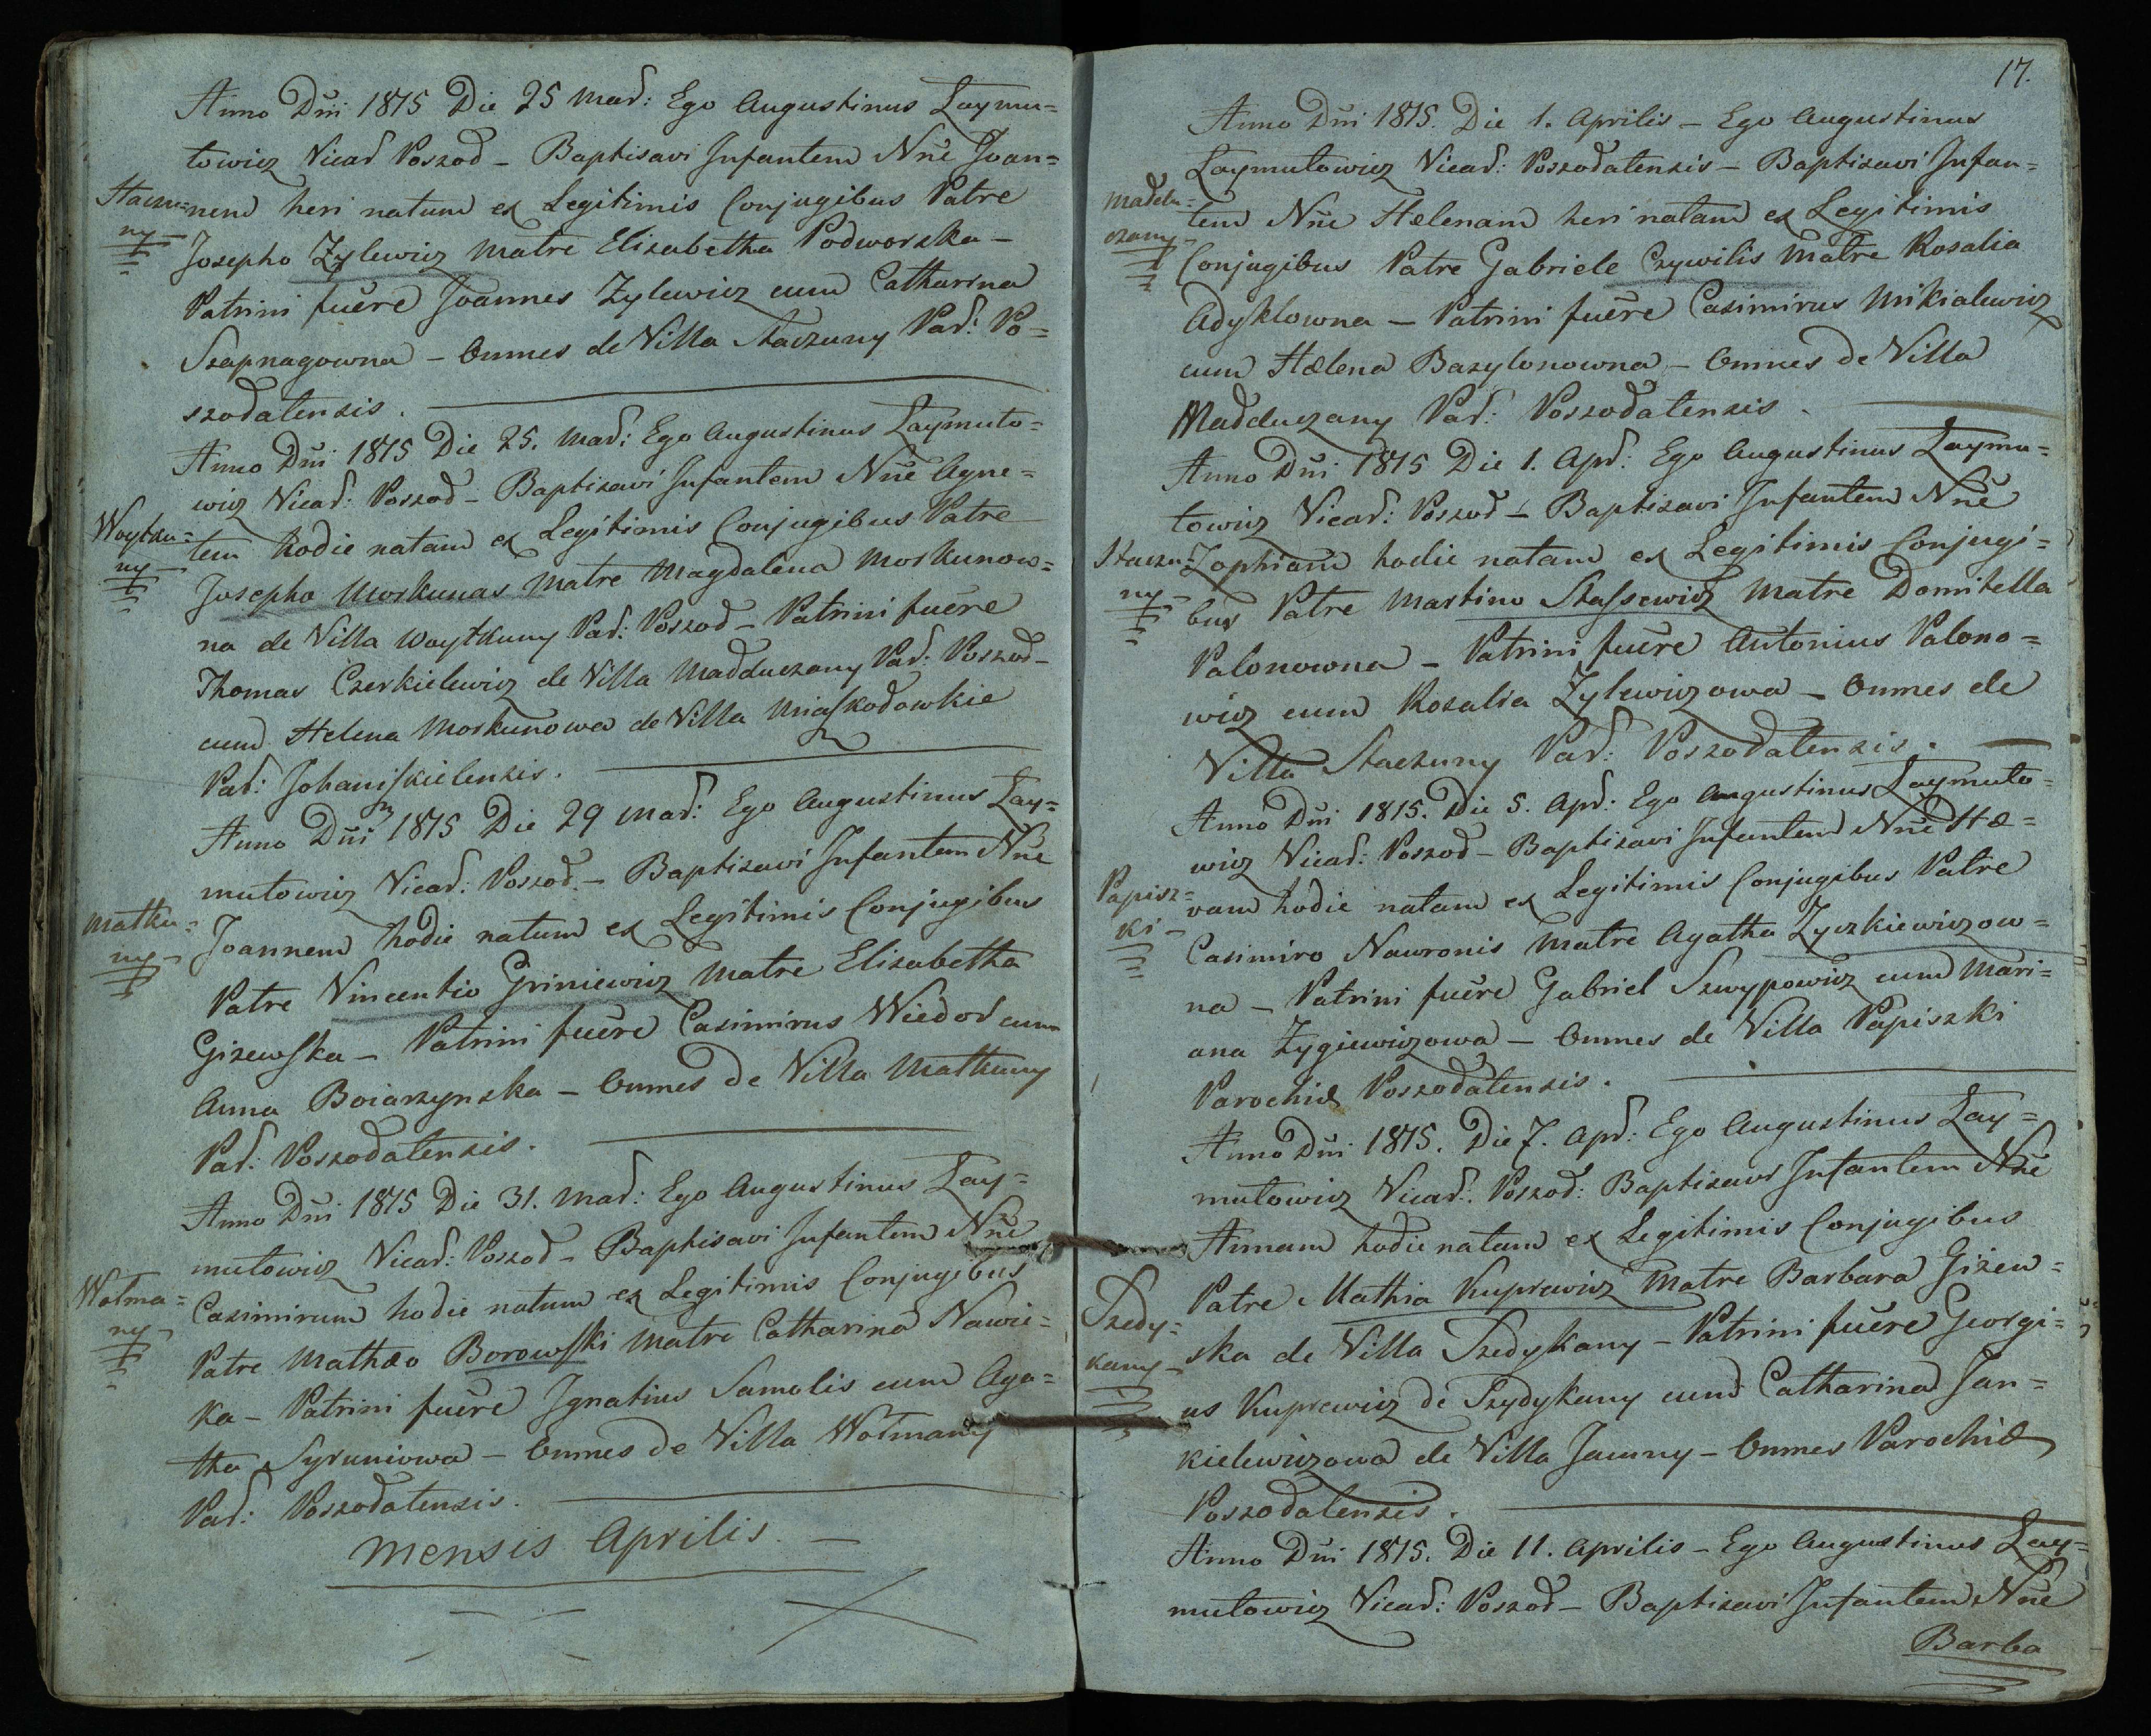 Anno Dñi 1815 Die 25 Mar: Ego Augustinus Laymu=
towicz Vicar Poszod – Baptisavi Infantem Nñe Joan=
Staczu= nem heri natum ex Legitimis Conjugibus Patre
ny – Josepho Zylewicz Matre Elisabetha Podworska –
Patrini fuêre Joannes Zylewicz cum Catharina
Szapnagowna – Omnes de Villa Staczuny Par: Po=
szodatensis.
Anno Dñi 1815 Die 25. Mar: Ego Augustinus Laymuto=
wicz Vicar: Poszod – Baptizavi Infantem Nñe Agne=
Woytku= tem hodie natam ex Legitimis Conjugibus Patre
ny – Josepho Moskunas Matre Magdalena Moskunow=
na de Villa Woytkuny Par: Poszod – Patrini fuêre
Thomas Czerkielewicz de Villa Madduczany Par: Poszod –
cum Helena Moskunowa de Villa Miaskodowkie
Par: Johaniskielensis.
Anno Dñi 1815 Die 29 Mar: Ego Augustinus Lay=
mutowicz Vicar: Poszod. – Baptizavi Infantem Nñe
Matku= Joannem hodie natum ex Legitimis Conjugibus
ny – Patre Vincentio Griniewicz Matre Elisabetha
Gizewska – Patrini fuêre Casimirus Wiedor cum
Anna Boiarzynska – Omnes de Villa Matkuny
Par: Poszodatensis.
Anno Dñi 1815 Die 31. Mar: Ego Augustinus Lay=
mutowicz Vicar: Poszod – Baptisavi Infantem Nñe
Wołma= Casimirum hodie natum ex Legitimis Conjugibus
ny – Patre Mathæo Borowski Matre Catharina Nawic=
ka – Patrini fuêre Ignatius Samolis cum Aga=
tha Syruniowa – Omnes de Villa Wołmany
Par: Poszodatensis.
Mensis Aprilis. –
17.
Anno Dñi 1815. Die 1. Aprilis – Ego Augustinus
Laymutowicz Vicar: Poszodatensis – Baptizavi Infan=
Maddu= tem Nñe Hælenam heri natam ex Legitimis
czany – Conjugibus Patre Gabriele Czywilis Matre Rosalia
Adyklowna – Patrini fuêre Casimirus Mikialewicz
cum Hælena Bazylonowna – Omnes de Villa
Madduczany Par: Poszodatensis.
Anno Dñi 1815 Die 1. Apr: Ego Augustinus Laymu=
towicz Vicar: Poszod – Baptizavi Infantem Nñe
Staczu= Zophiam hodie natam ex Legitimis Conjugi=
ny – bus Patre Martino Stassewicz Matre Domitella
Palonowna – Patrini fuêre Antonius Palono=
wicz cum Rosalia Zylewiczowa – Omnes de
Villa Staczuny Par: Poszodatensis.
Anno Dñi 1815. Die 5. Apr: Ego Augustinus Laymuto=
wicz Vicar: Poszod – Baptizavi Infantem Nñe Hæ=
Papisz= vam hodie natam ex Legitimis Conjugibus Patre
ki – Casimiro Nawronis Matre Agatha Zyczkiewiczow=
na – Patrini fuêre Gabriel Szwypowicz cum Mari=
ana Zygiewiczowa – Omnes de Villa Papiszki
Parochiæ Poszodatensis.
Anno Dñi 1815. Die 7. Apr: Ego Augustinus Lay=
mutowicz Vicar: Poszod: Baptizavi Infantem Nñe
Annam hodie natam ex Legitimis Conjugibus
Szedy= Patre Mathia Kuprewicz Matre Barbara Gizew=
kany – ska de Villa Szedykany – Patrini fuêre Georgi=
us Kuprewicz de Szydykany cum Catharina Jan=
kielewiczowa de Villa Jawny – Omnes Parochiæ
Poszodatensis.
Anno Dñi 1815. Die 11. Aprilis – Ego Augustinus Lay=
mutowicz Vicar: Poszod – Baptizavi Infantem Nñe
Barba